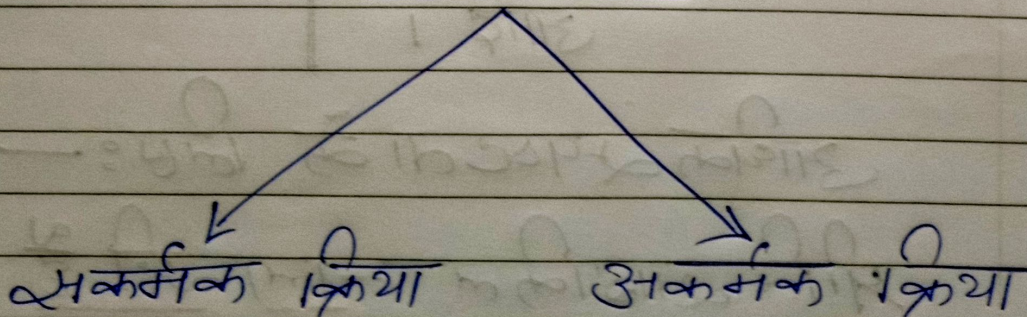 सकर्मक क्रिया अकर्मक क्रिया